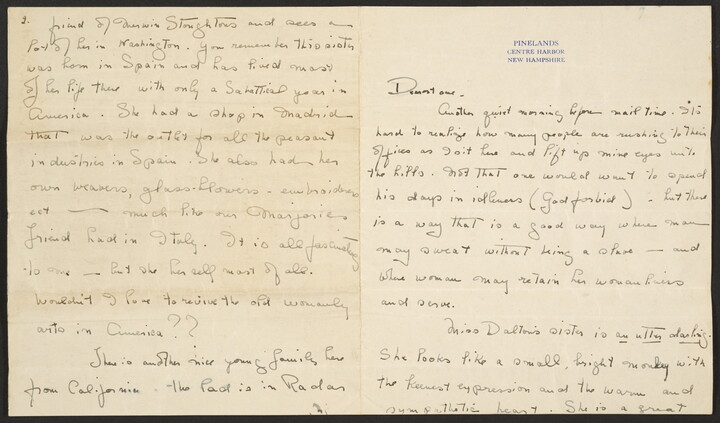 PINELANDS
CENTRE HARBOR
NEW HAMPSHIRE
Dearest one -
Another quiet morning before mail time. It's
hard to realize how many people are rushing to their
offices as I sit here and lift up mine eyes unto
the hills. Not that one would want to spend
his days in idleness (God forbid) - but there
is a way that is a good way where man
may sweat without being a slave - and
where woman may retain her womanliness
and serve.
Miss Dalton's sister is an utter darling.
She looks like a small, bright monkey with
the keenest expression and the warm and
sympathetic heart. She is a great
2.
friend of Stoughtons and sees a
lot of her in Washington. You remember this sister
was born in Spain and has lived most
of her life there with only a Sabattical year in
America. She had a shop in Madrid
that was the outlet for all the peasant
industries in Spain. She also had her
own weavers, glass-blowers - embroiderers
ect - much like our Marjorie's
friend had in Italy. It is all fascinating
to me - but she herself most of all.
Wouldn't I love to revive the old womanly
arts in America??
There is another nice young family here
from California - the lad is in Radar